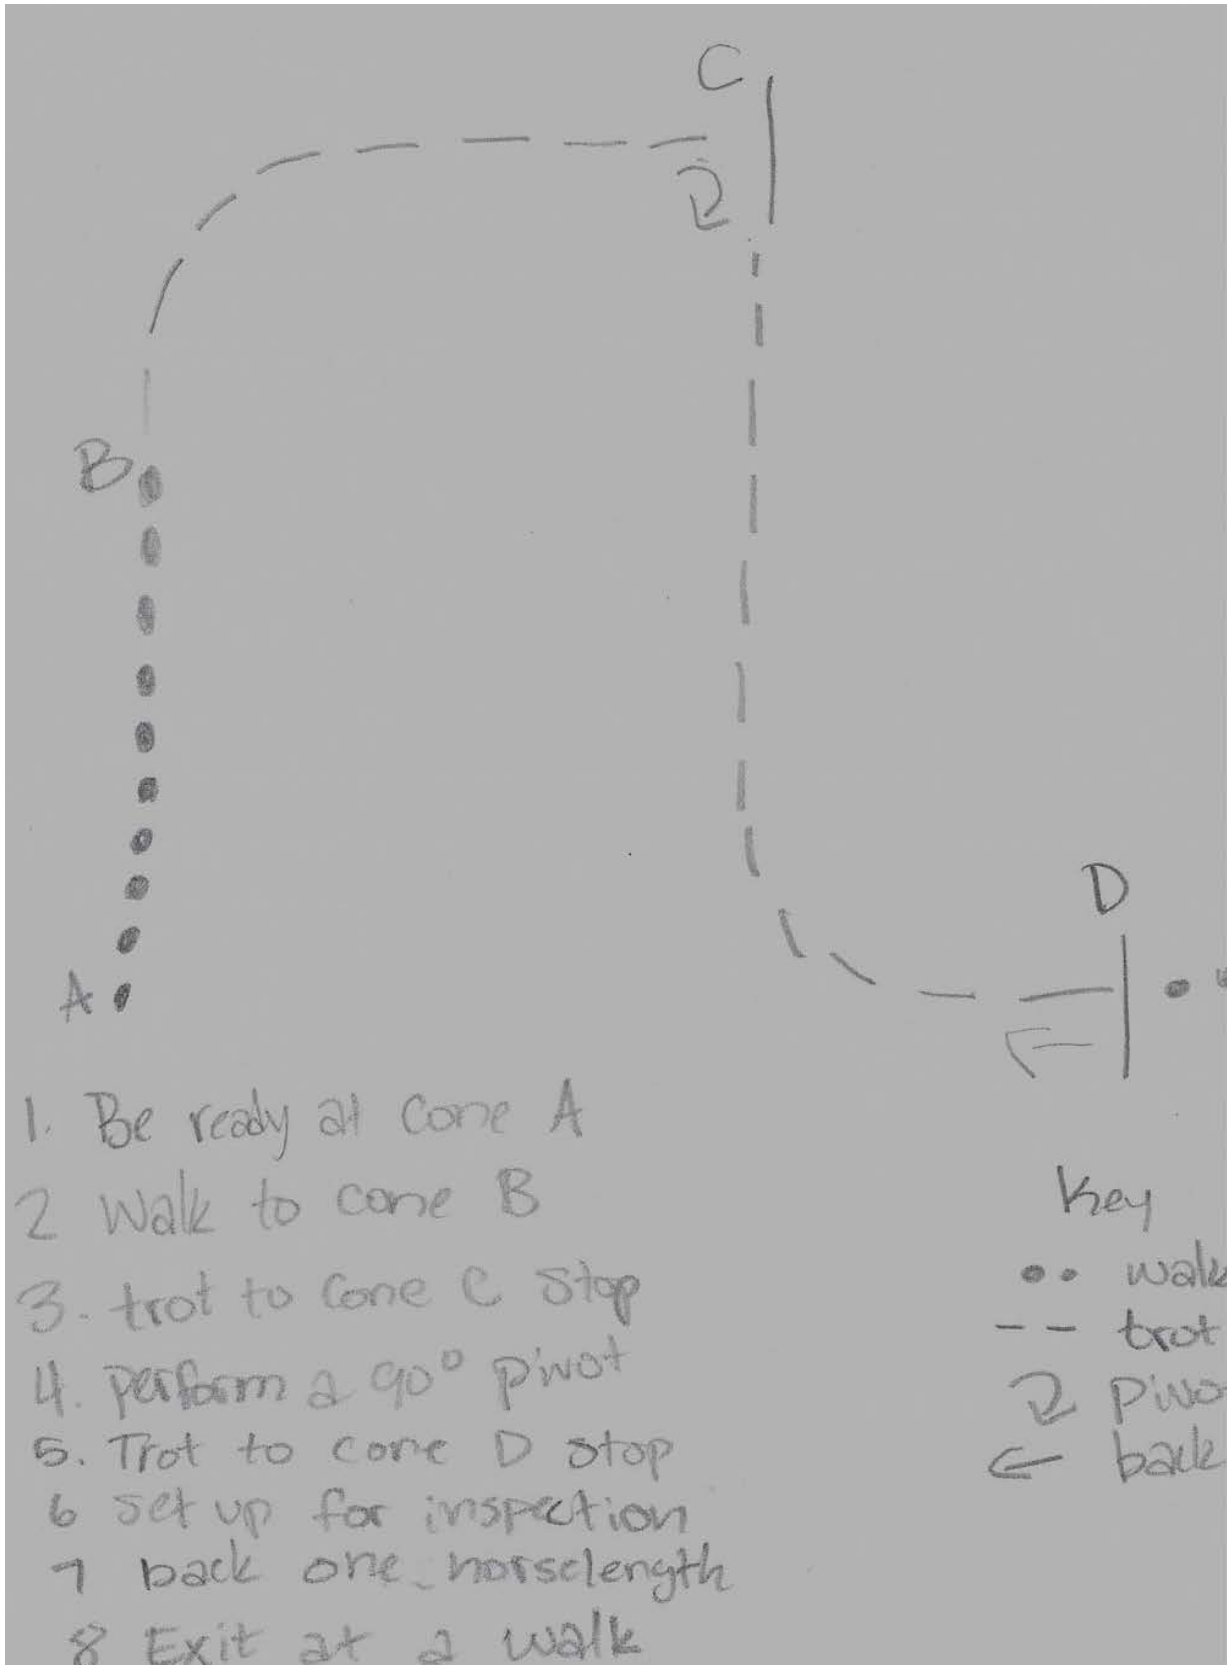 C
B
A
D
1. Be ready at cone A
2 Walk to cone B
3. trot to cone C stop
4. perform a 90° pivot
5. Trot to cone D stop
6 set up for inspection
7 back one horselength
8 Exit at a walk
Key
walk
trot
pivo
back